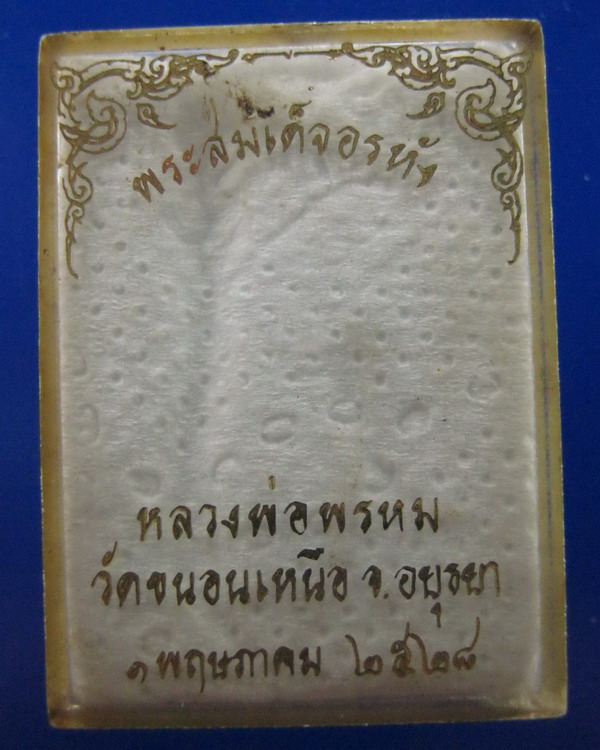 พระสมเด็จอรหัง
หลวงพ่อพรหม
วัดขนอนเหนือ จ.อยุธยา
๑ พฤษภาคม ๒๕๒๘